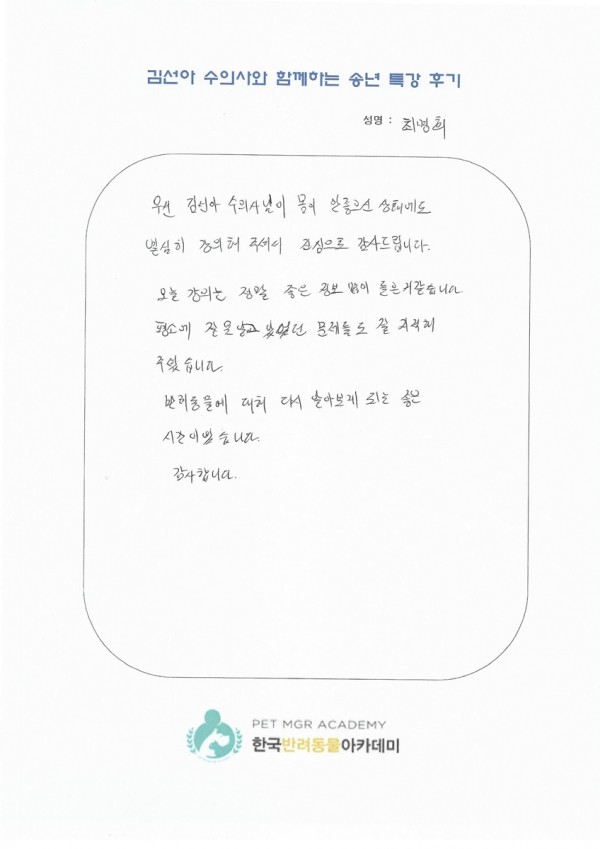 김선아 수의사와 함께하는 송년 특강 후기
성명 : 최명희
우선 김선아 수의사님이 몸이 안좋으신 상태에도
열심히 강의해 주셔서 진심으로 감사드립니다.
오늘 강의는 정말 좋은 정보 많이 들은거같습니다.
평소에 잘못알고 있었던 문제들도 잘 지적해
주셨습니다.
반려동물에 대해 다시 돌아보게 되는 좋은
시간이었습니다.
감사합니다.
PET MGR ACADEMY
한국반려동물아카데미